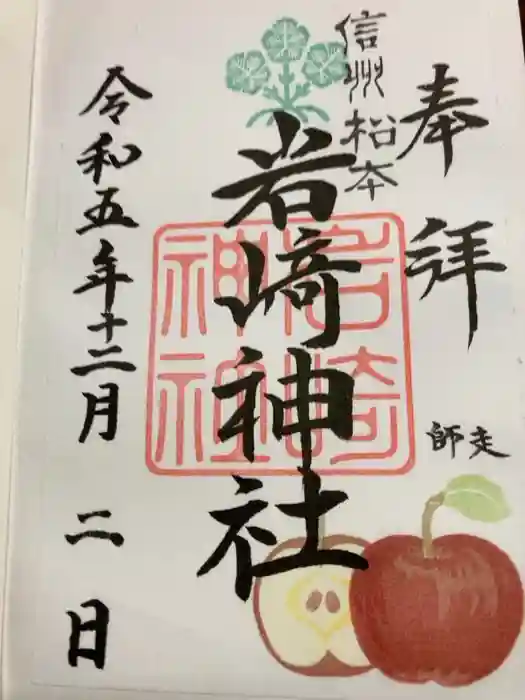 奉拝
信州松本
師走
岩崎神社
岩崎神社
令和五年十二月二日